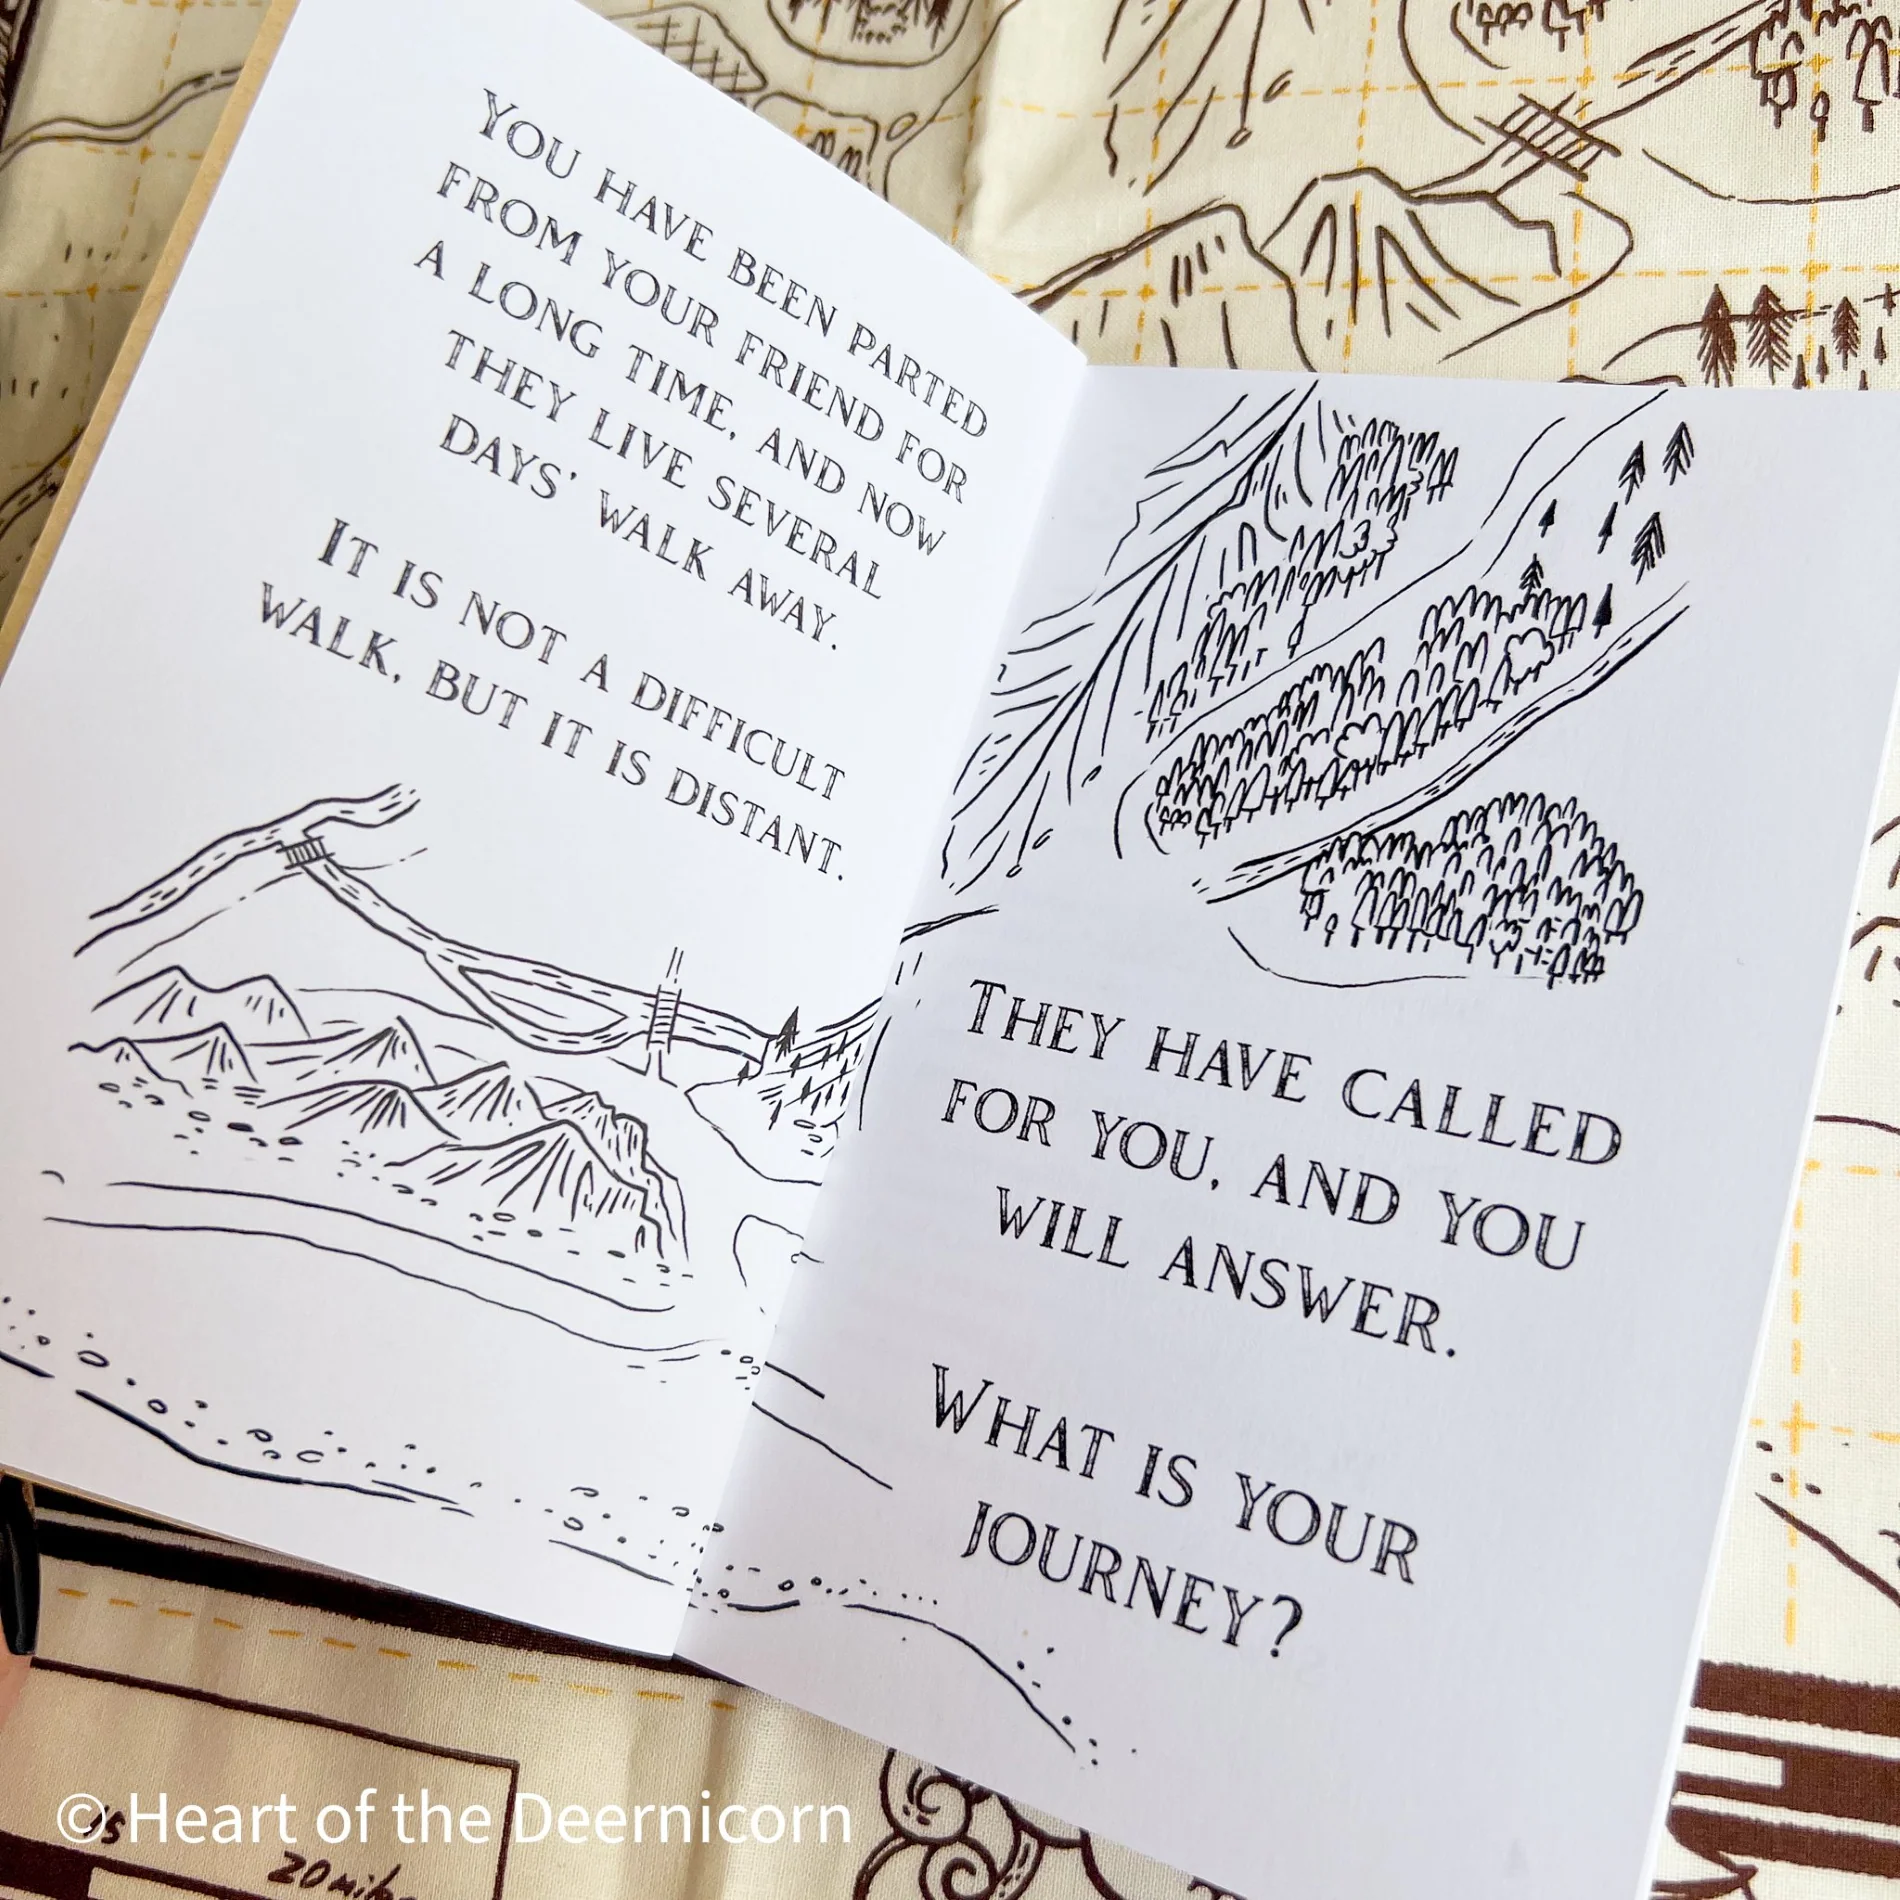 You have been parted
from your friend for
a long time, and now
they live several
days' walk away.
It is not a difficult
walk, but it is distant.
They have called
for you, and you
will answer.
What is your
journey?
© Heart of the Deernicorn
20 miles